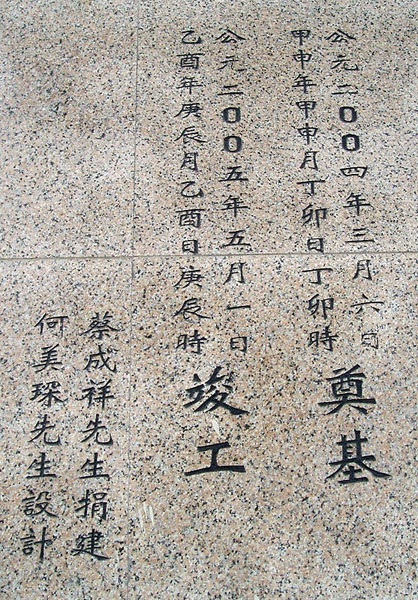 公元二00四年三月六日
甲申年甲申月丁卯日丁卯時
奠基
公元二00五年五月一日
乙酉年庚辰月乙酉日庚辰時
竣工
蔡成祥先生捐建
何美琛先生設計